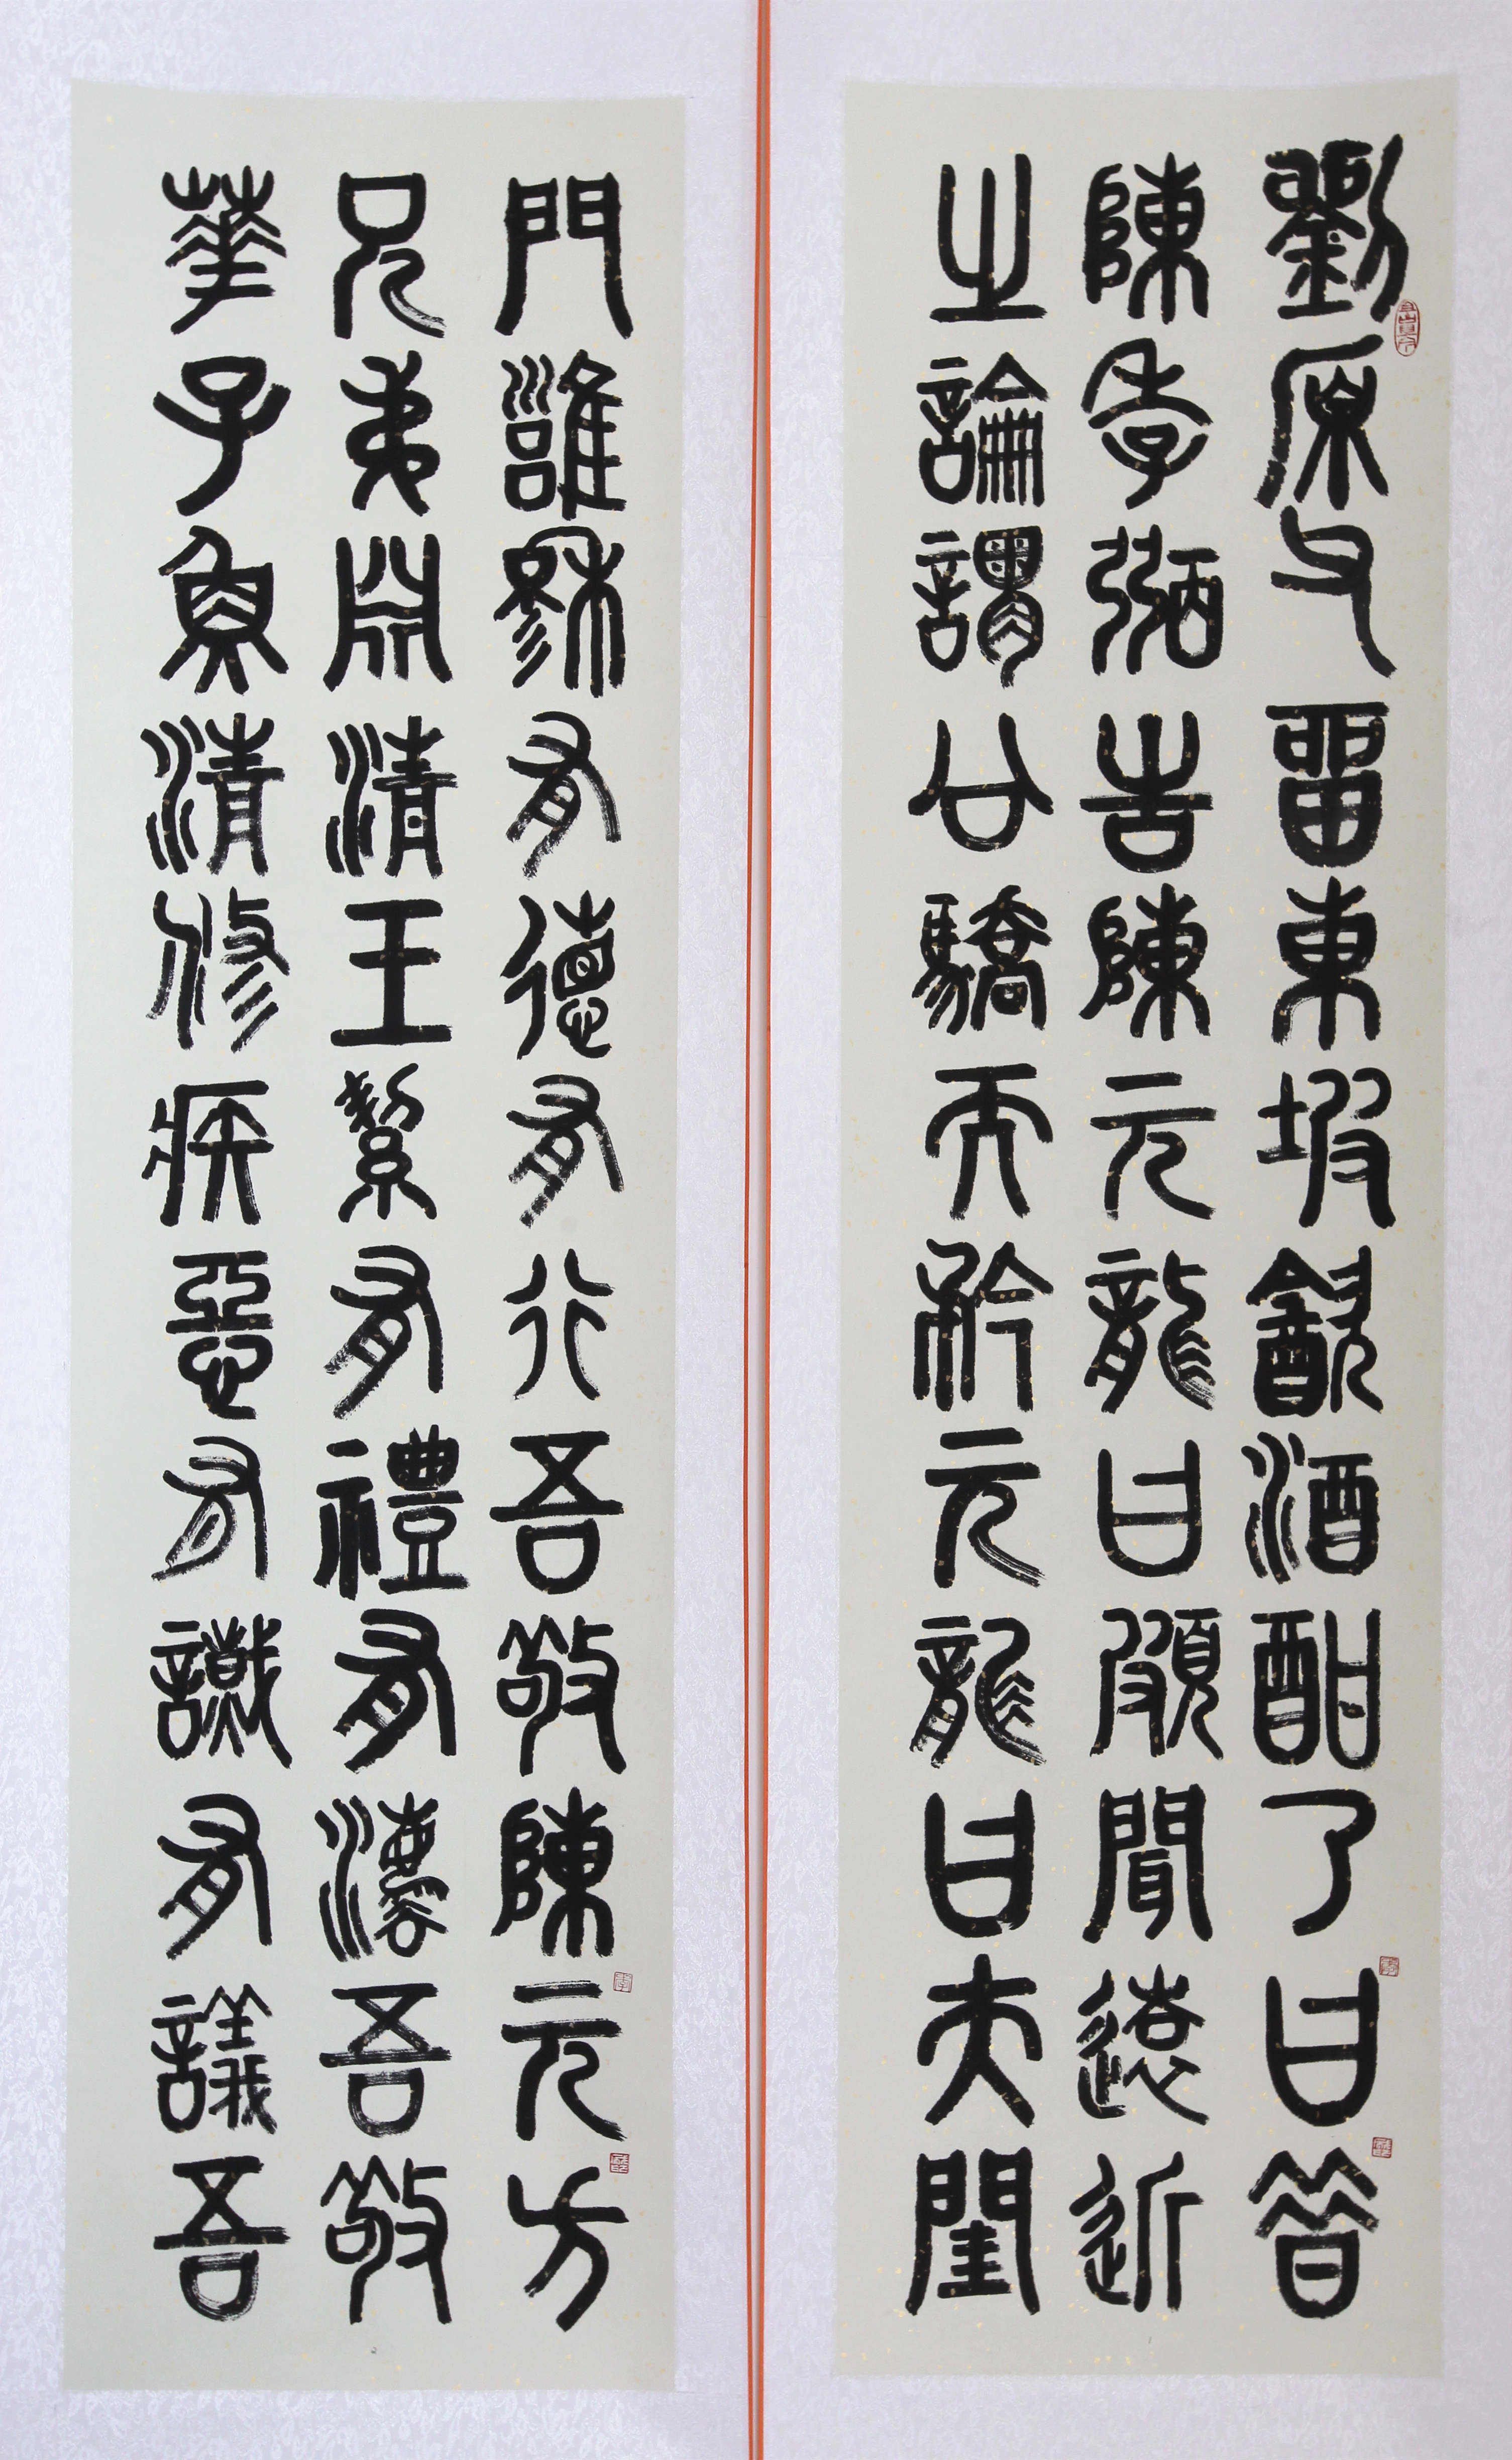 劉原父畱東坡飲酒酣了曰昔
陳季弼告陳元龍曰頗聞遠近
之論謂公驕而矜元龍曰夫閨
門雝穆有德有行吾敬陳元方
兄弟淵清玉絜有禮有灋吾敬
華子魚清修疾惡有識有議吾